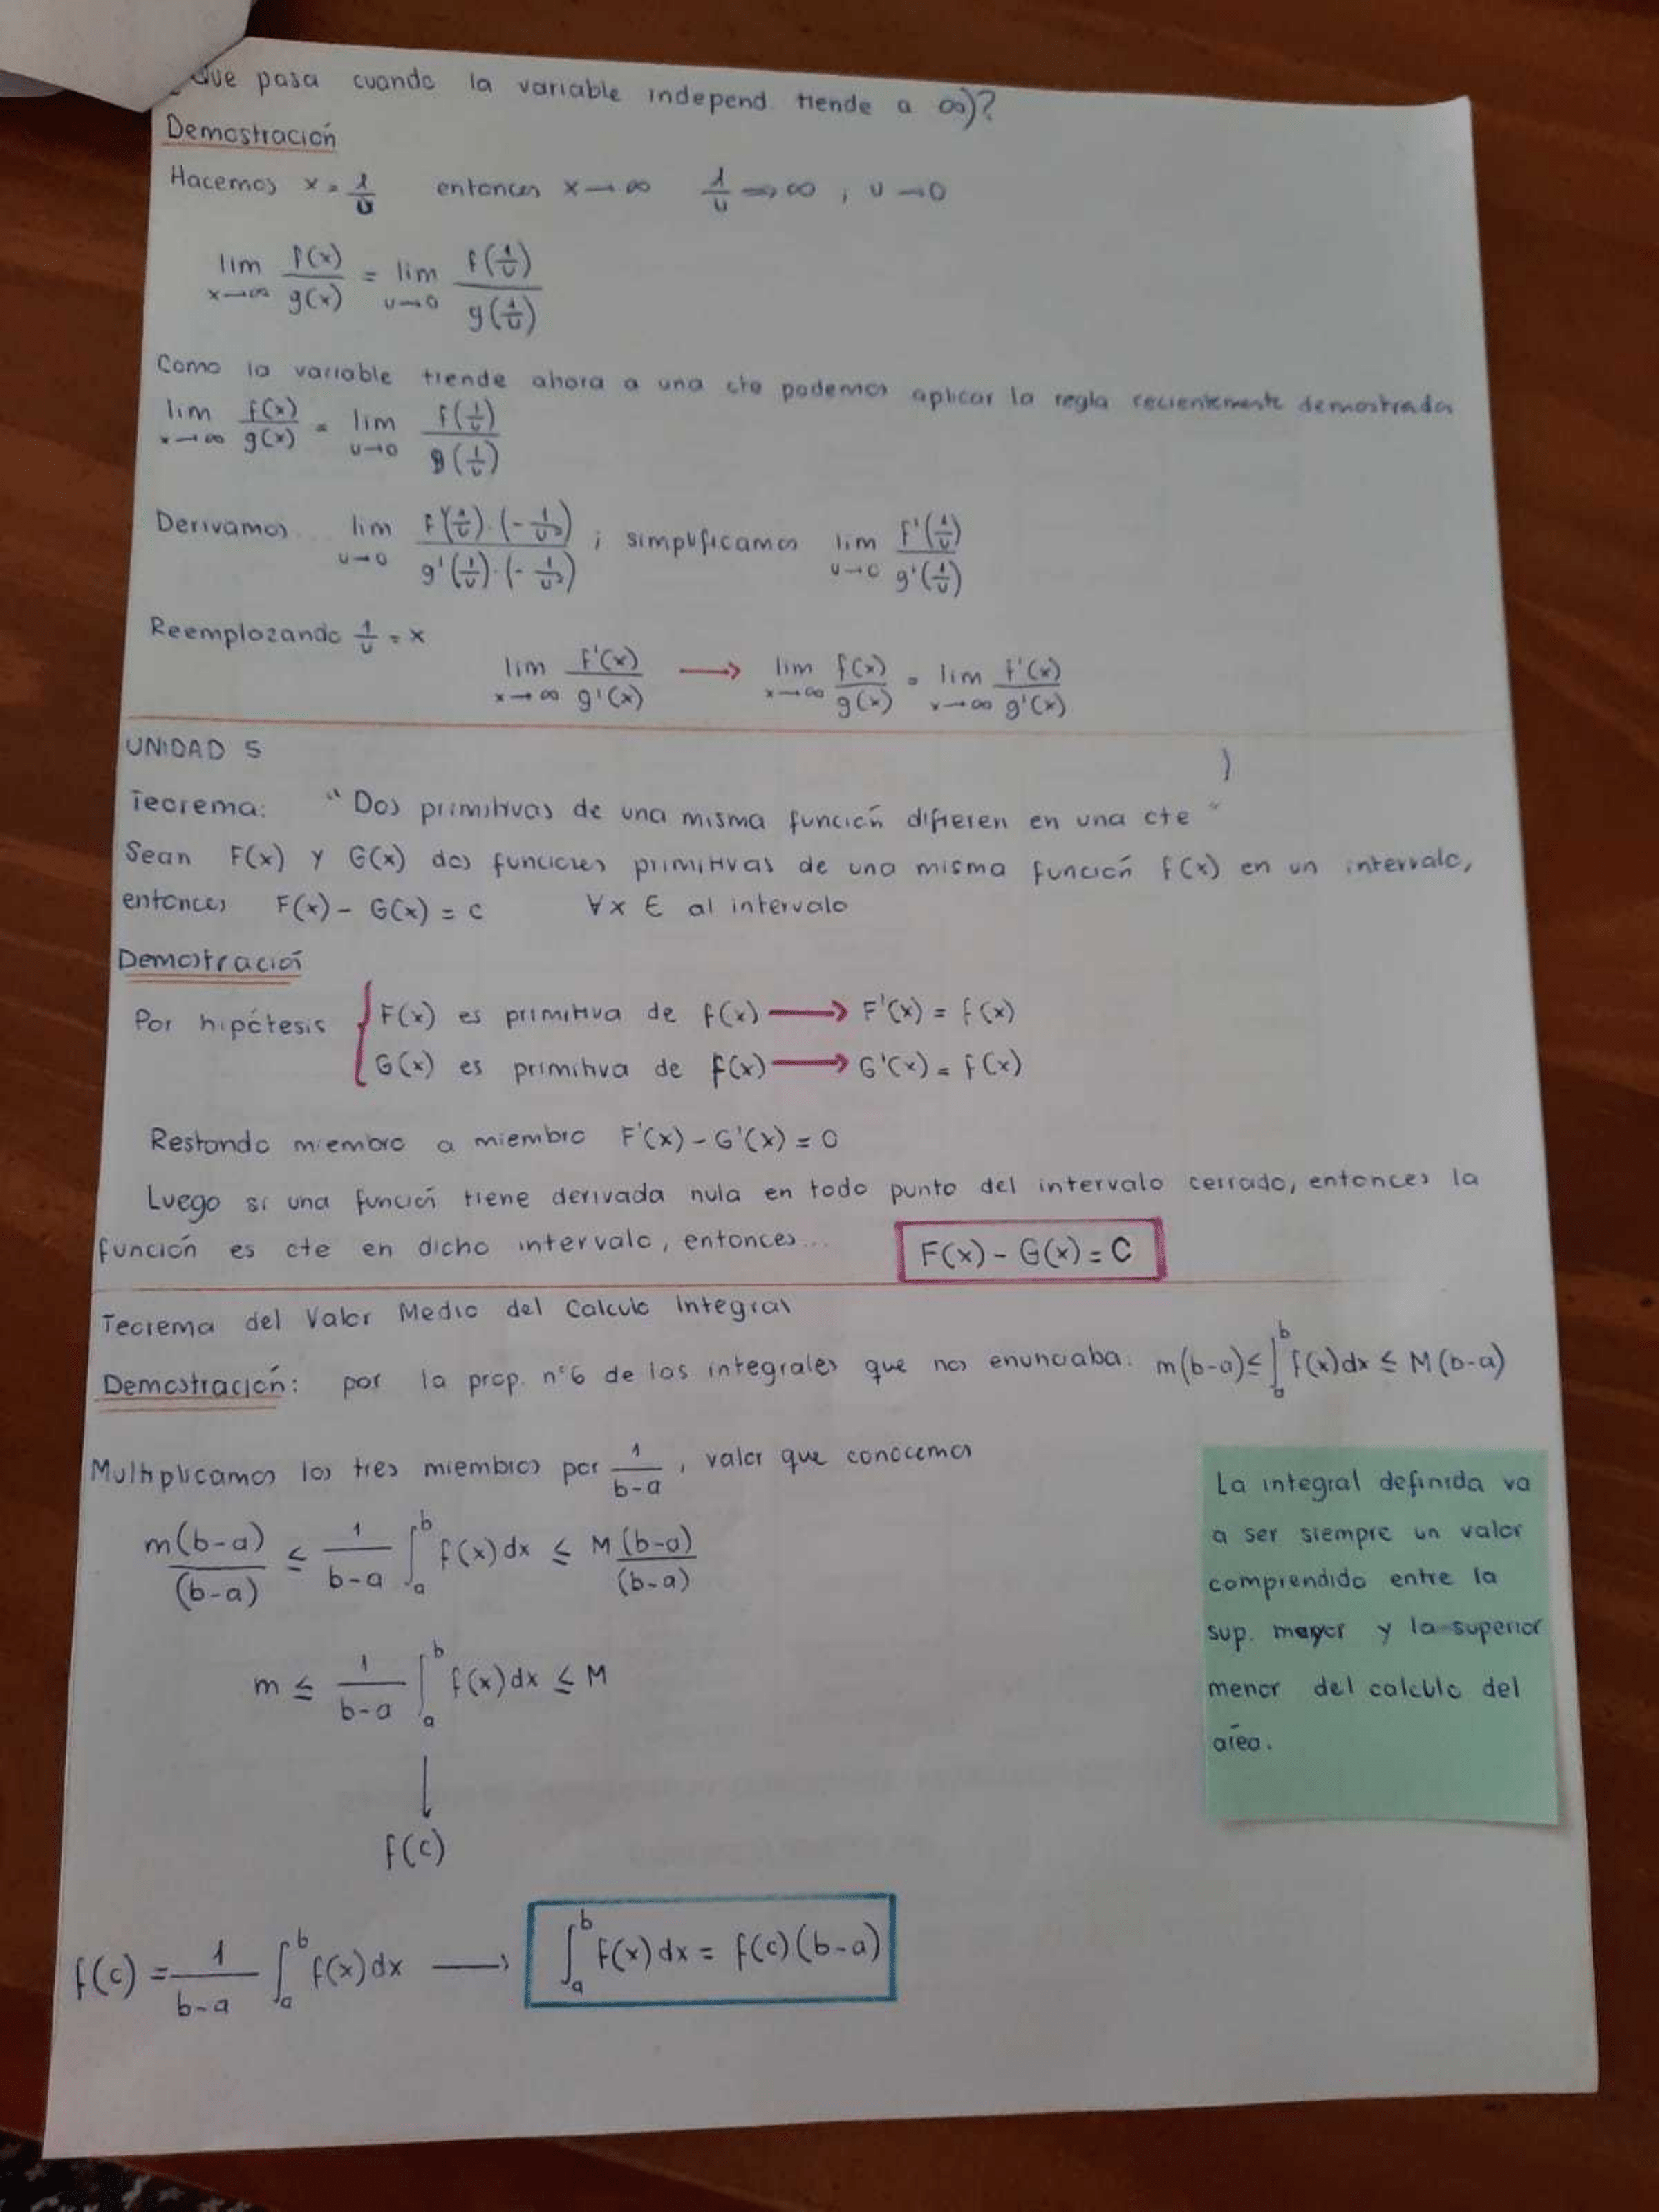 ¿Que pasa cuando la variable independ. tiende a ∞)?
Demostración
Hacemos x = 1/u entonces x → ∞ 1/u → ∞ , u → 0
lim x→∞ f(x)/g(x) = lim u→0 f(1/u)/g(1/u)
Como la variable tiende ahora a una cte podemos aplicar la regla recientemente demostrada
lim x→∞ f(x)/g(x) = lim u→0 f(1/u)/g(1/u)
Derivamos... lim u→0 F'(1/u)·(-1/u²)/g'(1/u)·(-1/u²) ; simplificamos lim u→0 F'(1/u)/g'(1/u)
Reemplazando 1/u = x
lim x→∞ F'(x)/g'(x) → lim x→∞ f(x)/g(x) = lim x→∞ f'(x)/g'(x)
UNIDAD 5
Teorema: "Dos primitivas de una misma función difieren en una cte"
Sean F(x) y G(x) dos funciones primitivas de una misma función f(x) en un intervalo,
entonces F(x) - G(x) = c ∀x ∈ al intervalo
Demostración
Por hipótesis { F(x) es primitiva de f(x) → F'(x) = f(x)
G(x) es primitiva de f(x) → G'(x) = f(x)
Restando miembro a miembro F'(x) - G'(x) = 0
Luego si una función tiene derivada nula en todo punto del intervalo cerrado, entonces la
función es cte en dicho intervalo, entonces... F(x) - G(x) = C
Teorema del Valor Medio del Calculo Integral
Demostración: por la prop. n°6 de las integrales que nos enunciaba: m(b-a) ≤ ∫_a^b f(x)dx ≤ M(b-a)
Multiplicamos los tres miembros por 1/(b-a) , valor que conocemos
m(b-a)/(b-a) ≤ 1/(b-a) ∫_a^b f(x)dx ≤ M (b-a)/(b-a)
m ≤ 1/(b-a) ∫_a^b f(x)dx ≤ M
↓
f(c)
f(c) = 1/(b-a) ∫_a^b f(x)dx → ∫_a^b f(x)dx = f(c)(b-a)
La integral definida va
a ser siempre un valor
comprendido entre la
sup. mayor y la superior
menor del calculo del
área.